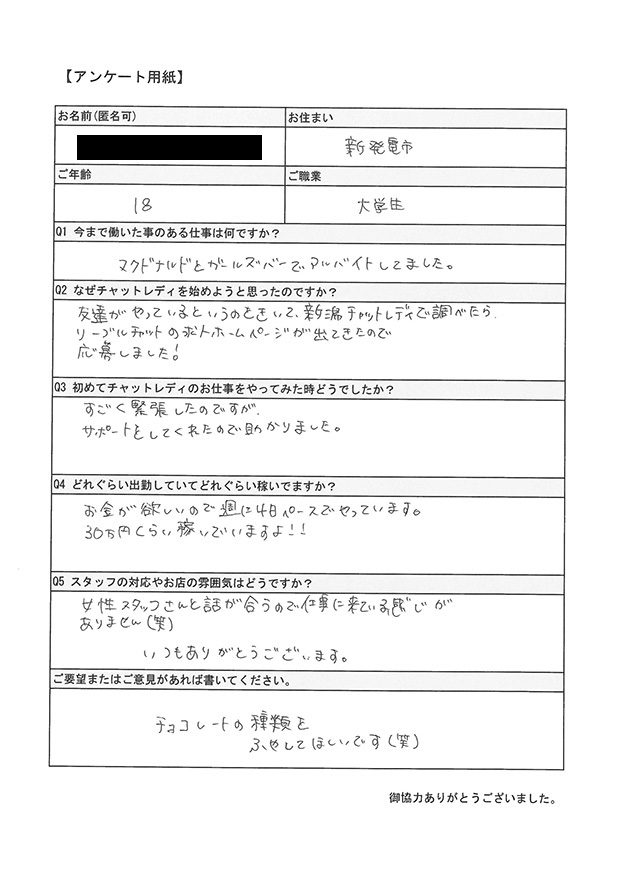 【アンケート用紙】
お名前(匿名可)
お住まい
新発田市
ご年齢
ご職業
18
大学生
Q1 今まで働いた事のある仕事は何ですか？
マクドナルドとガールズバーでアルバイトしてました。
Q2 なぜチャットレディを始めようと思ったのですか？
友達がやっているというのをきいて、新潟チャットレディで調べたら、
リーブルチャットの求人ホームページが出てきたので
応募しました！
Q3 初めてチャットレディのお仕事をやってみた時どうでしたか？
すごく緊張したのですが、
サポートをしてくれたので助かりました。
Q4 どれぐらい出勤していてどれぐらい稼いでますか？
お金が欲しいので週に4日ペースでやっています。
30万円くらい稼いでいますよ！！
Q5 スタッフの対応やお店の雰囲気はどうですか？
女性スタッフさんと話が合うので仕事に来ている感じが
ありません(笑)
いつもありがとうございます。
ご要望またはご意見があれば書いてください。
チョコレートの種類を
ふやしてほしいです(笑)
御協力ありがとうございました。